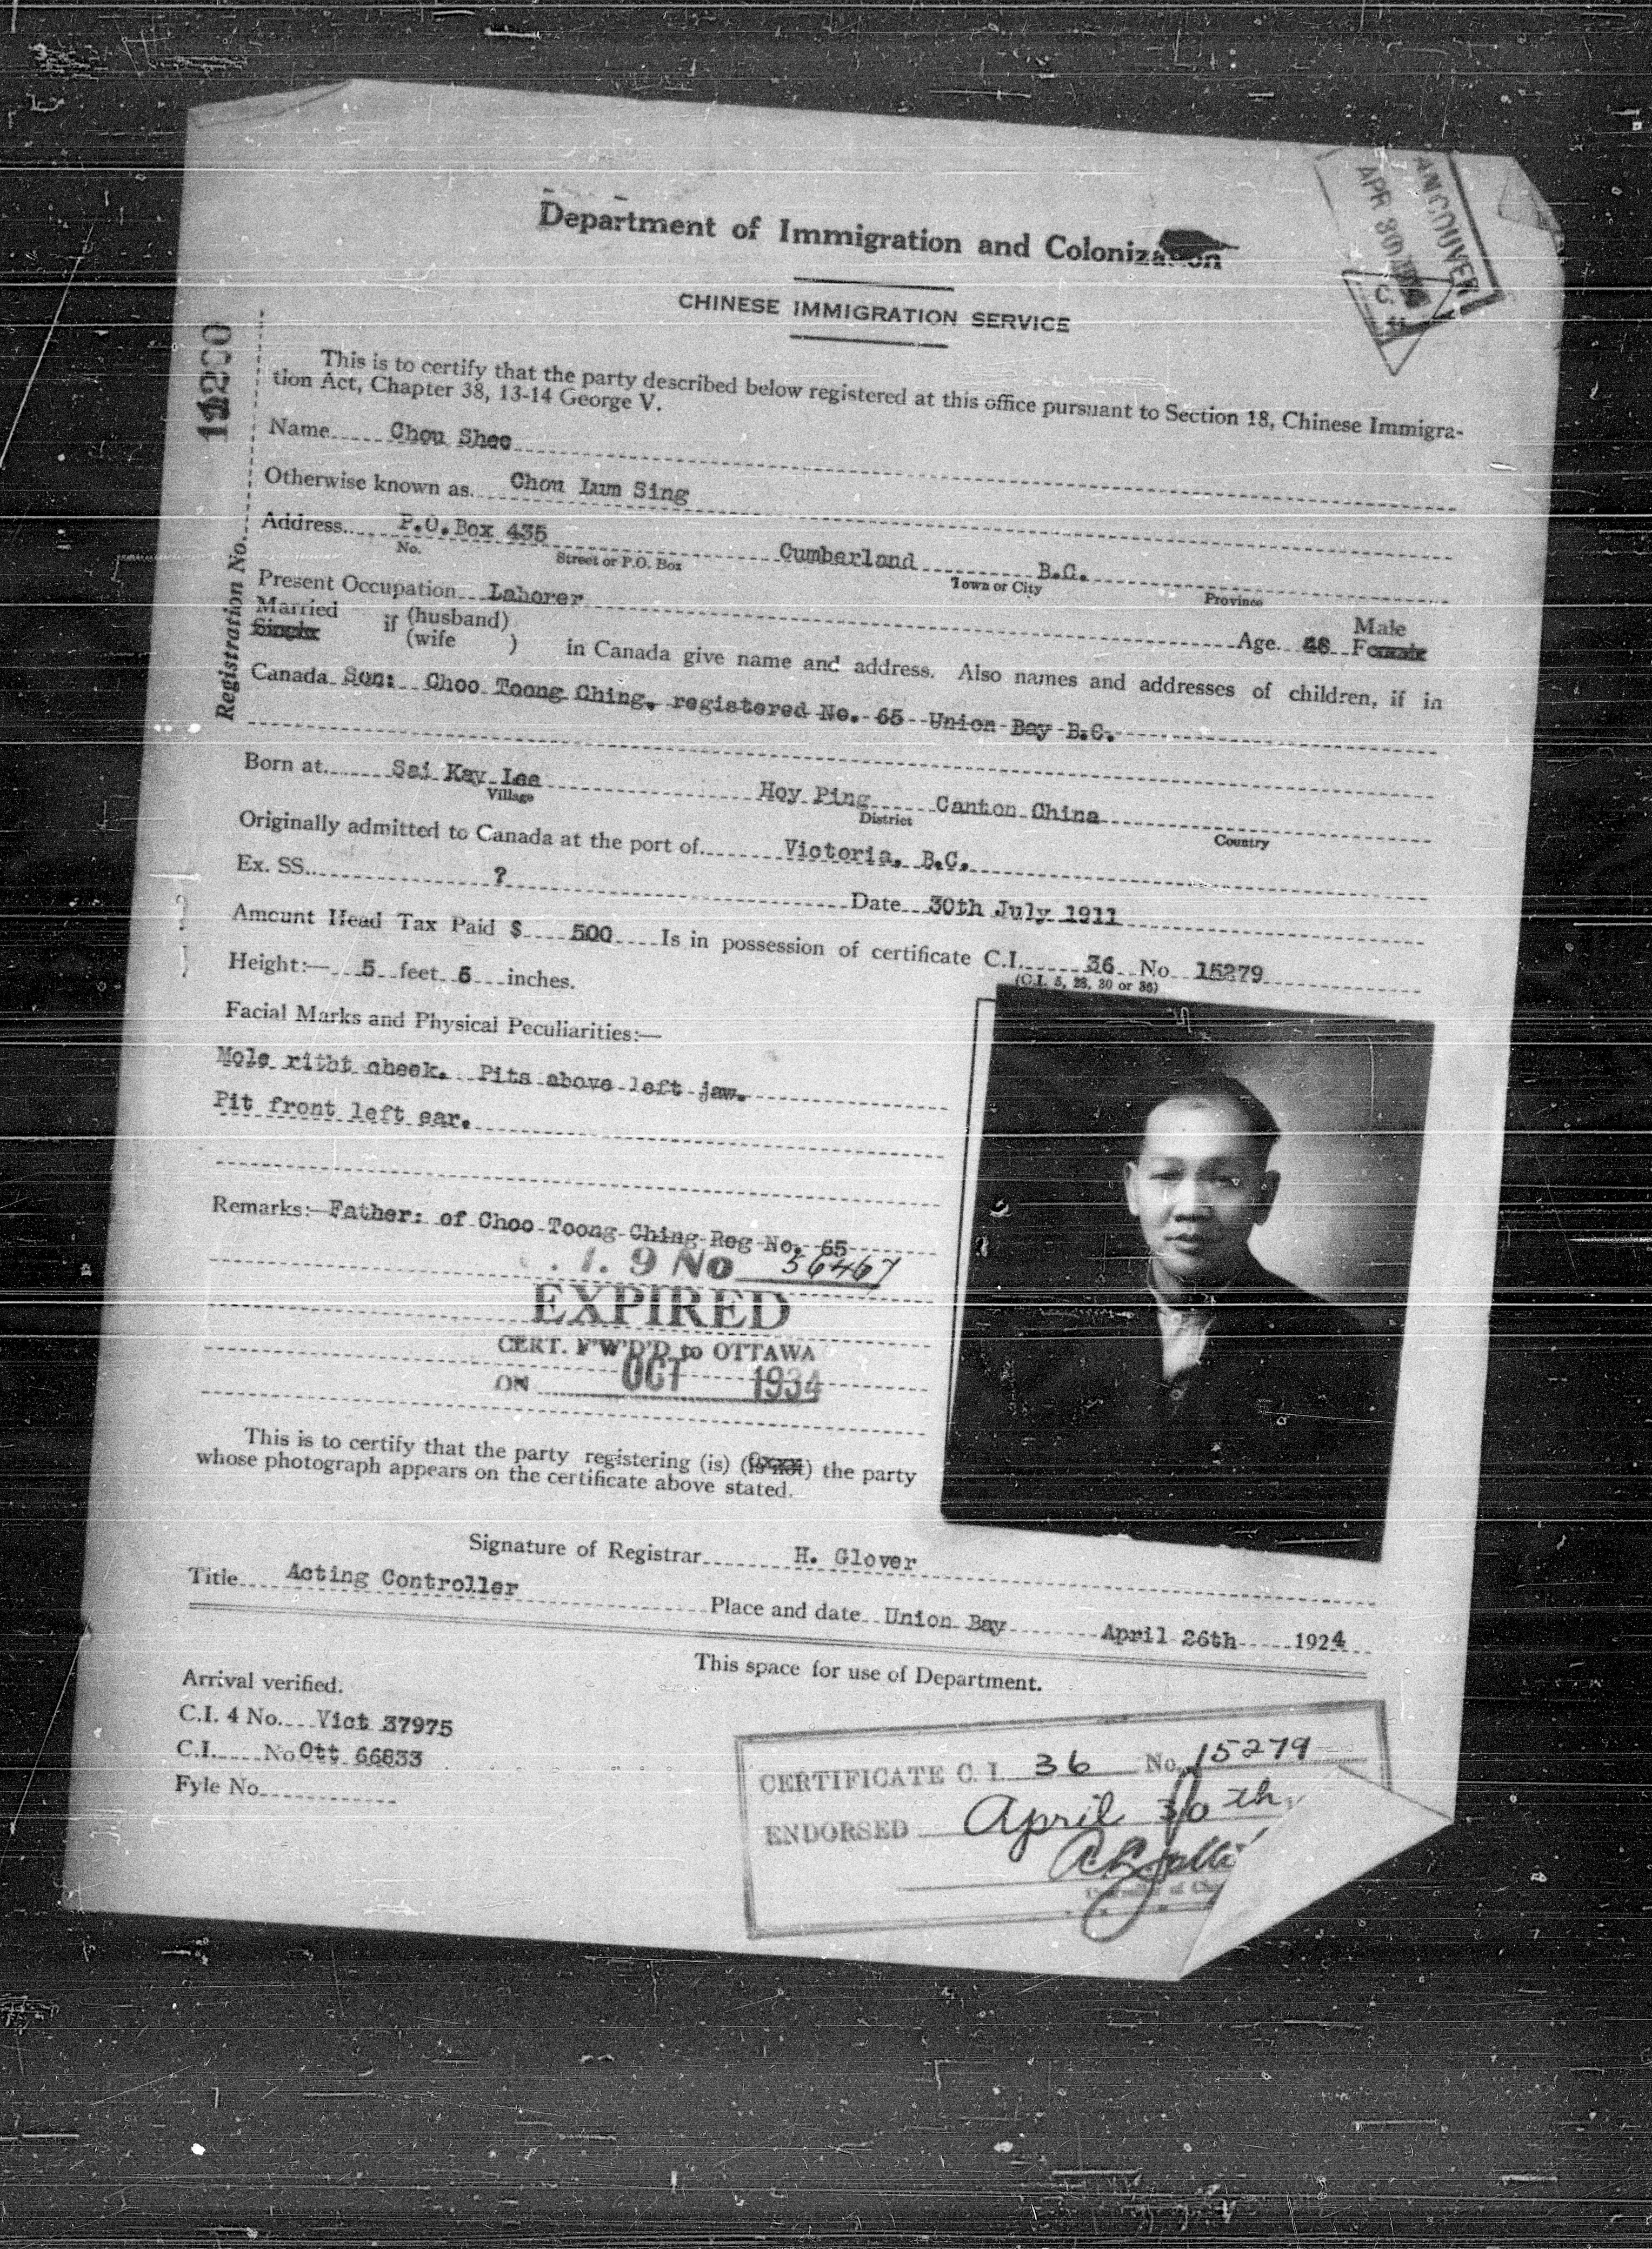 VANCOUVER
APR 30
Department of Immigration and Colonization
CHINESE IMMIGRATION SERVICE
Registration No.
This is to certify that the party described below registered at this office pursuant to Section 18, Chinese Immigra-
tion Act, Chapter 38, 13-14 George V.
Name Chou Shee
Otherwise known as Chou Lum Sing
Address P.O.Box 435 Cumberland B.C.
No. Street or P.O. Box Town or City Province
Present Occupation Laborer Age Male
Married if (husband) in Canada give name and address. Also names and addresses of children, if in
Single (wife ) Female
Canada Son: Choo Toong Ching, registered No. 65 Union Bay B.C.
Born at Sai Kay Lee Hoy Ping Canton China
Village District Country
Originally admitted to Canada at the port of Victoria, B.C.
Ex. SS. ? Date 30th July 1911
Amount Head Tax Paid $ 500 Is in possession of certificate C.I. 36 No 15279
(C.I. 5, 28, 30 or 36)
Height:— 5 feet 6 inches.
Facial Marks and Physical Peculiarities:—
Mole ritht cheek. Pits above left jaw.
Pit front left ear.
Remarks:— Father: of Choo Toong Ching Reg No. 65
. I. 9 No 56467
EXPIRED
CERT. F'W'D'D to OTTAWA
ON OCT 1934
This is to certify that the party registering (is) (is not) the party
whose photograph appears on the certificate above stated.
Signature of Registrar H. Glover
Title Acting Controller Place and date Union Bay April 26th 1924
This space for use of Department.
Arrival verified.
C.I. 4 No. Vict 37975
C.I. No Ott 66833
Fyle No.
CERTIFICATE C. I. 36 No. 15279
ENDORSED April 30th